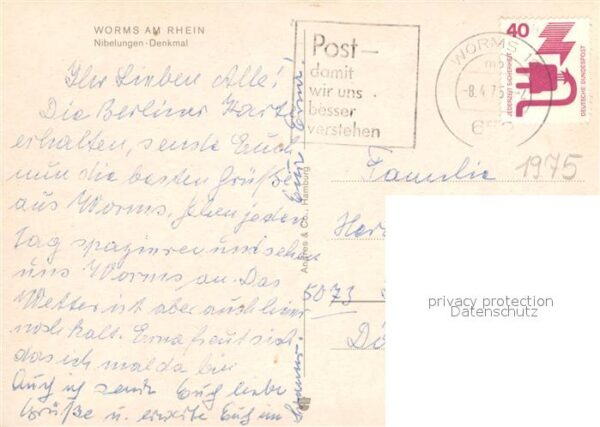 WORMS AM RHEIN
Nibelungen-Denkmal
Ihr Lieben Alle!
Die Berliner Karte
erhalten, sende Euch
nun die besten Grüße
aus Worms. Gehen jeden
Tag spazieren und sehen
uns Worms an. Das
Wetter ist aber auch hier
noch kalt. Erna freut sich
das ich mal da bin
Auch ich sende Euch liebe
Grüße u. erwarte Euch im
Sommer.
Eure Erna.
Andres & Co., Hamburg
Post-
damit
wir uns
besser
verstehen
WORMS 1
-8.4.75
40
JEDERZEIT SICHERHEIT
DEUTSCHE BUNDESPOST
1975
Familie
5073
privacy protection
Datenschutz